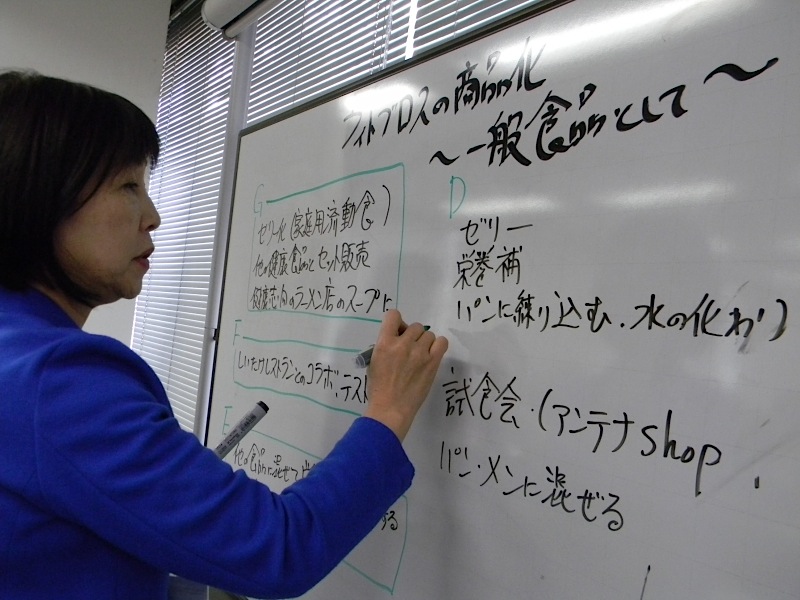 フィトブロスの商品化
～一般食品として～
G
ゼリー化(家庭用流動食)
他の健康食品とセット販売
健康志向のラーメン店のスープに
F
しいたけレストランとのコラボ、テスト
E
他の食品に混ぜて
する
D
ゼリー
栄養補
パンに練り込む．水の代わり
試食会・(アンテナshop
パン・メンに混ぜる